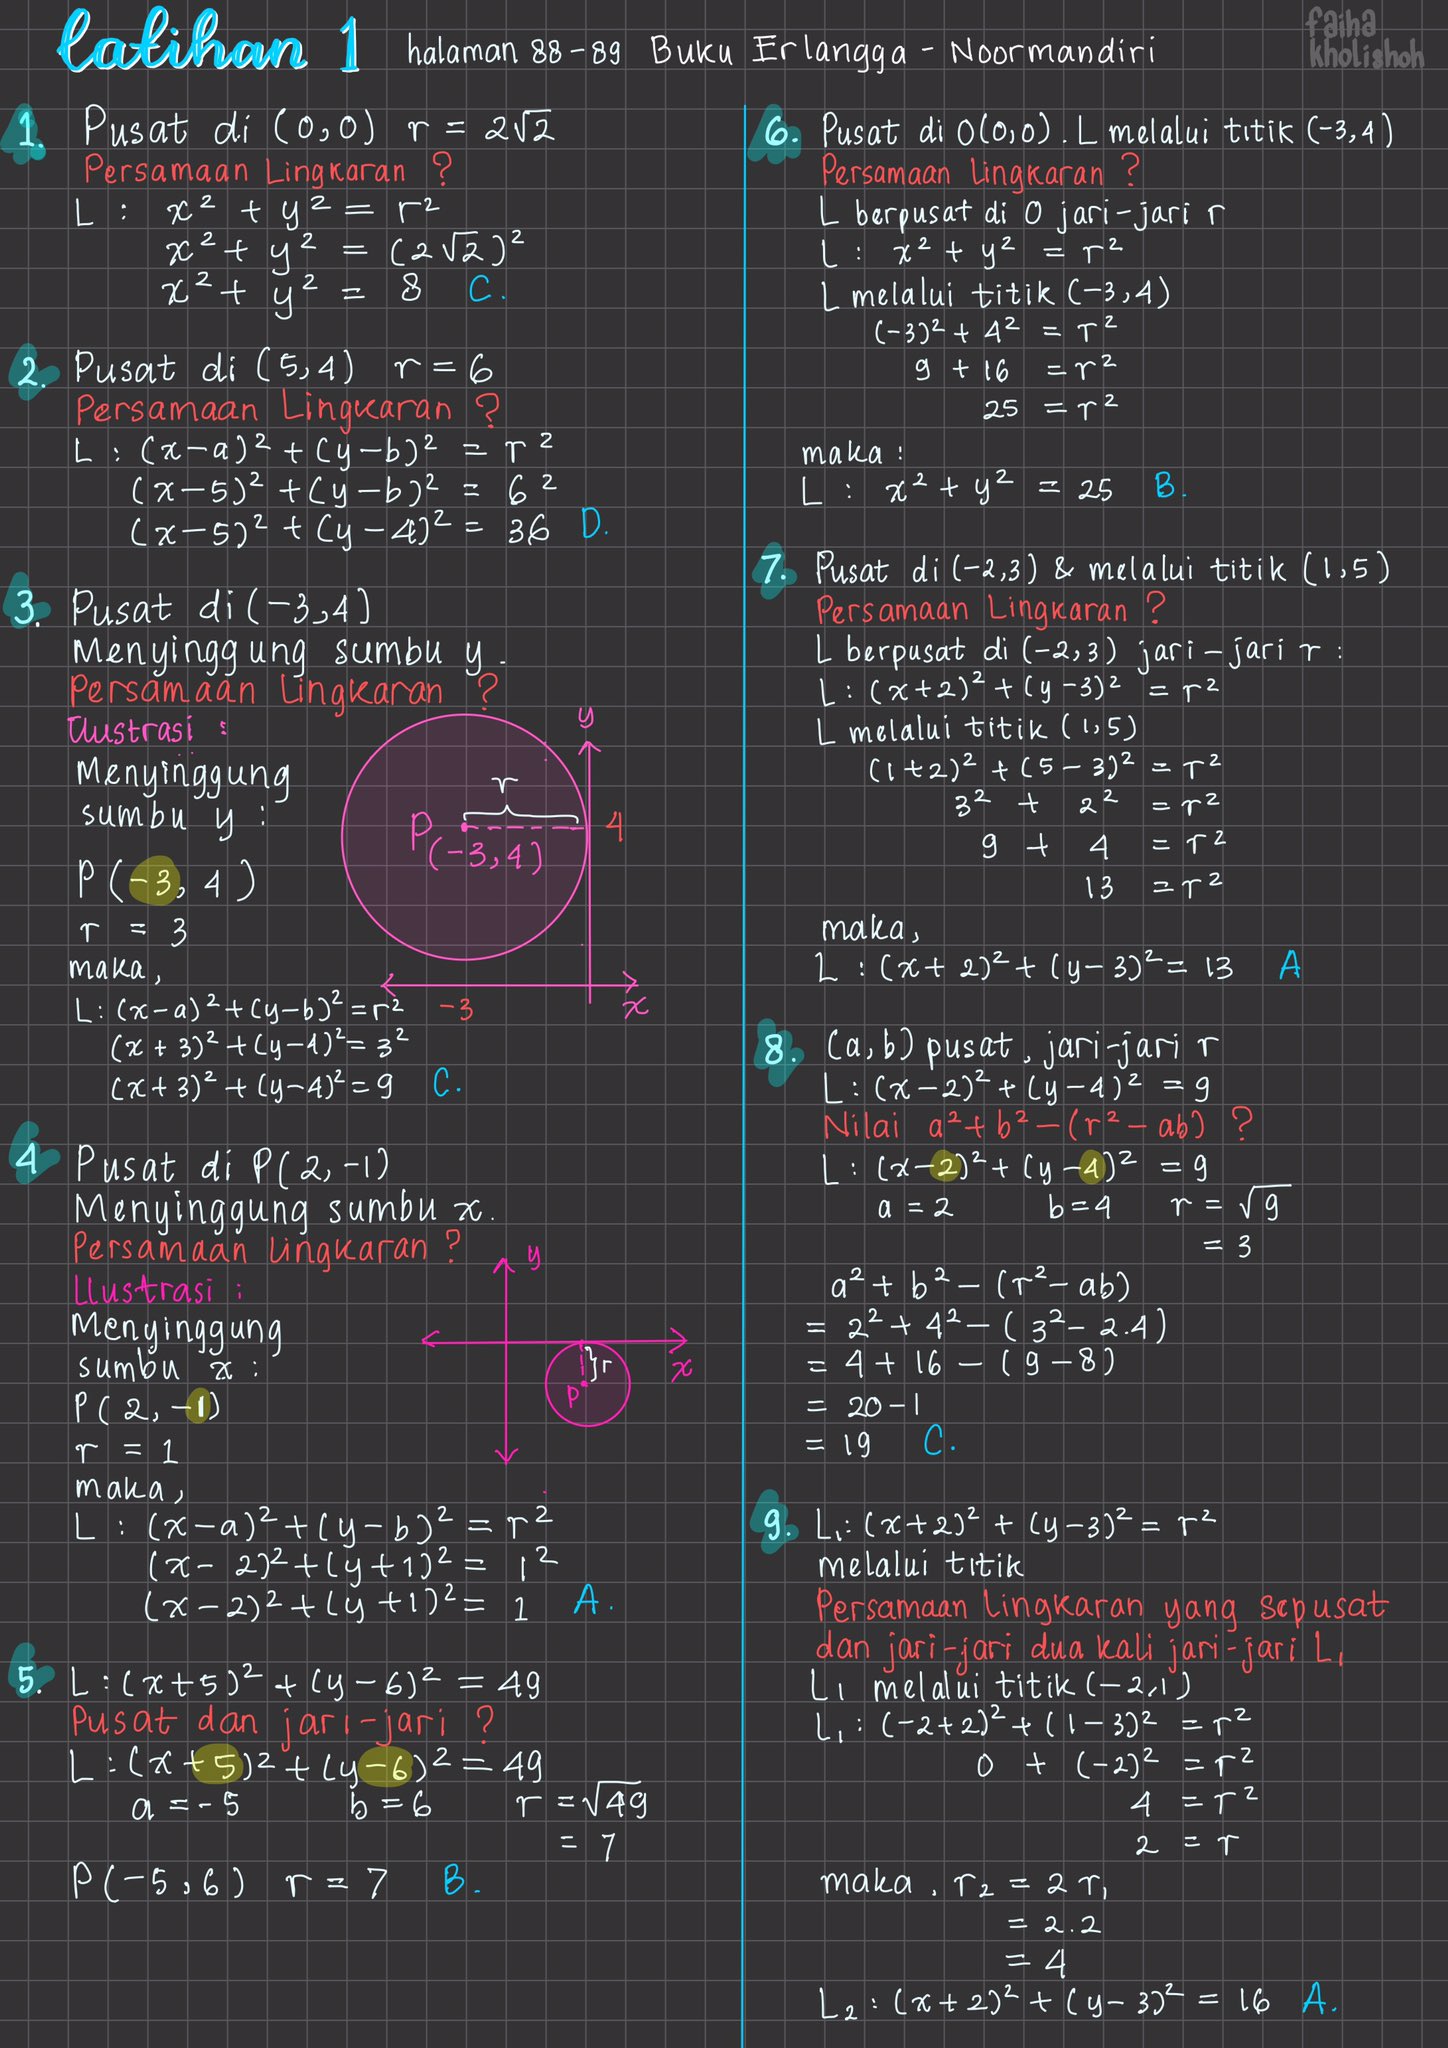 latihan 1 halaman 88-89 Buku Erlangga - Noormandiri
faiha
kholishoh
1. Pusat di (0,0) r = 2√2
Persamaan Lingkaran ?
L : x² + y² = r²
x² + y² = (2√2)²
x² + y² = 8 C.
2. Pusat di (5,4) r = 6
Persamaan Lingkaran ?
L : (x-a)² + (y-b)² = r²
(x-5)² + (y-b)² = 6²
(x-5)² + (y-4)² = 36 D.
3. Pusat di (-3,4)
Menyinggung sumbu y.
Persamaan Lingkaran ?
Ilustrasi :
Menyinggung
sumbu y :
P(-3, 4)
r = 3
maka,
L : (x-a)² + (y-b)² = r²
(x+3)² + (y-4)² = 3²
(x+3)² + (y-4)² = 9 C.
y
r
P
(-3,4)
4
-3
x
4 Pusat di P(2,-1)
Menyinggung sumbu x.
Persamaan Lingkaran ?
Ilustrasi :
Menyinggung
sumbu x :
P(2,-1)
r = 1
maka,
L : (x-a)² + (y-b)² = r²
(x-2)² + (y+1)² = 1²
(x-2)² + (y+1)² = 1 A.
y
x
r
P
5. L : (x+5)² + (y-6)² = 49
Pusat dan jari-jari ?
L : (x+5)² + (y-6)² = 49
a = -5 b = 6 r = √49
= 7
P(-5,6) r = 7 B.
6. Pusat di O(0,0). L melalui titik (-3,4)
Persamaan Lingkaran ?
L berpusat di O jari-jari r
L : x² + y² = r²
L melalui titik (-3,4)
(-3)² + 4² = r²
9 + 16 = r²
25 = r²
maka :
L : x² + y² = 25 B.
7. Pusat di (-2,3) & melalui titik (1,5)
Persamaan Lingkaran ?
L berpusat di (-2,3) jari-jari r :
L : (x+2)² + (y-3)² = r²
L melalui titik (1,5)
(1+2)² + (5-3)² = r²
3² + 2² = r²
9 + 4 = r²
13 = r²
maka,
L : (x+2)² + (y-3)² = 13 A
8. (a,b) pusat, jari-jari r
L : (x-2)² + (y-4)² = 9
Nilai a² + b² - (r² - ab) ?
L : (x-2)² + (y-4)² = 9
a = 2 b = 4 r = √9
= 3
a² + b² - (r² - ab)
= 2² + 4² - (3² - 2.4)
= 4 + 16 - (9 - 8)
= 20 - 1
= 19 C.
9. L₁ : (x+2)² + (y-3)² = r²
melalui titik
Persamaan Lingkaran yang sepusat
dan jari-jari dua kali jari-jari L₁
L₁ melalui titik (-2,1)
L₁ : (-2+2)² + (1-3)² = r²
0 + (-2)² = r²
4 = r²
2 = r
maka, r₂ = 2 r₁
= 2.2
= 4
L₂ : (x+2)² + (y-3)² = 16 A.